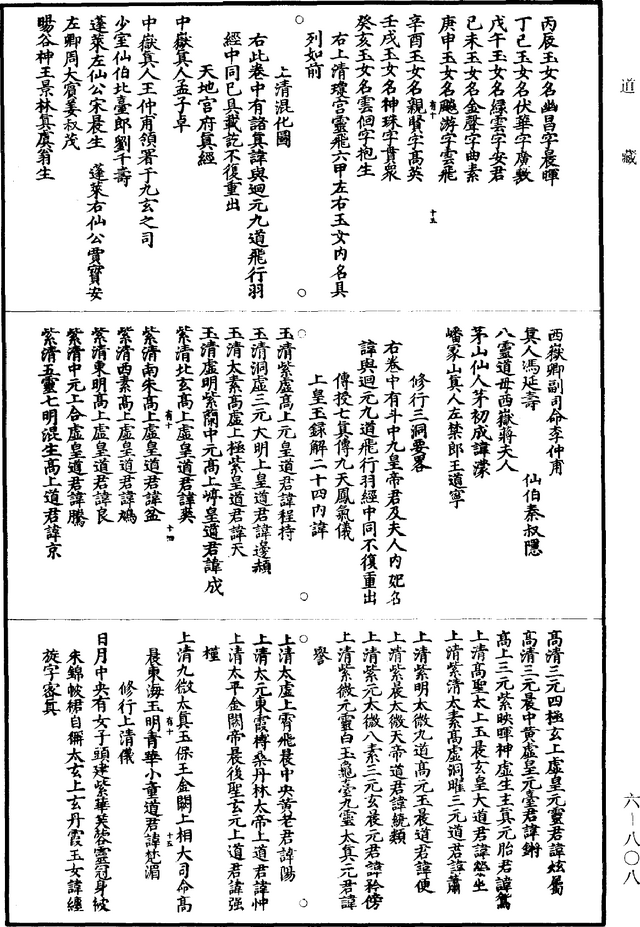 道藏
丙辰玉女名幽昌字晨暉
丁巳玉女名伏華字廣敷
戊午玉女名綠雲字安君
己未玉女名金聲字曲素
庚申玉女名飈游字雲飛
有十
十五
辛酉玉女名親賢字高英
壬戌玉女名神珠字貫眾
癸亥玉女名雲佪字抱生
右上清瓊宫靈飛六甲左右玉女内名具
列如前
上清混化圖
右此卷中有諸真諱與迴元九道飛行羽
經中同已具載訖不復重出
天地官府真經
中嶽真人孟子卓
中嶽真人王仲甫領署于九玄之司
少室仙伯北臺郎劉千壽
蓬萊左仙公宋晨生 蓬萊右仙公賈寶安
左卿周大賓姜叔茂
暘谷神王景林真虞翁生
西嶽卿副司命李仲甫
真人馮延壽 仙伯秦叔隱
八靈道母西嶽蔣夫人
茅山仙人茅初成諱濛
嶓冢山真人左禁郎王道寧
修行三洞要畧
右卷中有斗中九皇帝君及夫人内妃名
諱與迴元九道飛行羽經中同不復重出
傳授七真傳九天鳳氣儀
上皇玉籙解二十四内諱
玉清紫虛高上元皇道君諱程持
玉清洞虛三元大明上皇道君諱邊頳
玉清太素高虛上極紫皇道君諱天
玉清虛明紫蘭中元高上崢皇道君諱成
紫清北玄高上虛皇道君諱英
有十
十四
紫清南朱高上虛皇道君諱盆
紫清西素高上虛皇道君諱鳩
紫清東明高上虛皇道君諱良
紫清中元上合虛皇道君諱騰
紫清五靈七明混生高上道君諱京
高清三元四極玄上虛皇元靈君諱
高清三元晨中黃虛皇元臺君諱
高上三元紫映暉神虛生主真元胎君諱
上清高聖太上玉晨玄皇大道君諱
上清紫清太素高虛洞曜三元道君諱蕭
上清紫明太微九道高元玉晨道君諱便
上清紫晨太微天帝道君諱績類
上清紫元太微八素三元玄晨元君諱矜傍
上清紫微元靈白玉龜臺九靈太真元君諱
譽
上清太虛上霄飛晨中央黃老君諱陽
上清太元東霞榑桑丹林太帝上道君諱忡
上清太平金闕帝晨後聖玄元上道君諱强
權
上清九微太真玉保王金闕上相大司命高
有十
十五
晨東海王明青華小童道君諱楚湄
修行上清儀
日月中央有女子頭建紫華芙蓉靈冠身被
朱錦帔裙自稱太玄上玄丹霞玉女諱纏
旋字密真
六－八〇八